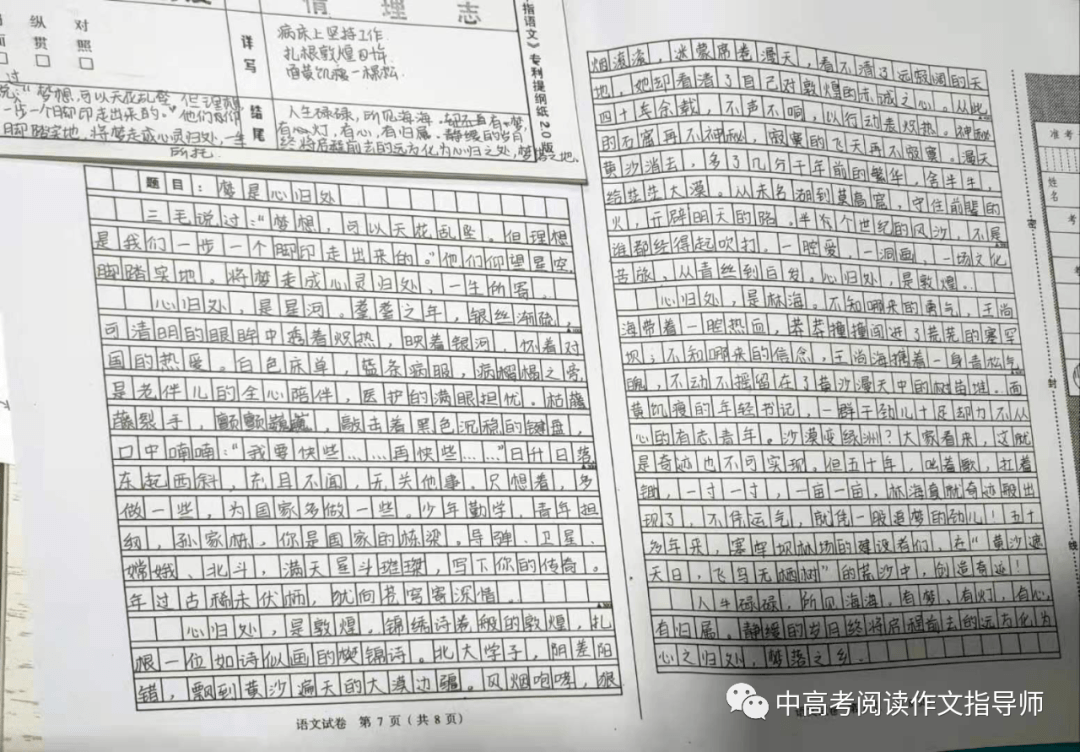 情 理 志
纵 对
贯 照
详写
病床上坚持工作
扎根敦煌
面黄饥瘦一棵松
结尾
指语文》专利提纲纸20版
"梦想,可以天花乱坠,但理想
一步一个脚印走出来的。"他们仰
脚踏实地,将梦走成心灵归处,一生
所托
人生碌碌,所见海海
有灯,有心,有归属。静缓的岁月
终将启程前去的远方化为心归之处,梦落之地.
题目:梦是心归处
三毛说过:"梦想,可以天花乱坠。但理想
是我们一步一个脚印走出来的。"他们仰望星空,
脚踏实地。将梦走成心灵归处,一生所寄。
心归处,是星河。耄耋之年,银丝渐疏,
可清明的眼眸中透着炽热,映着银河,怀着对
国的热爱。白色床单,蓝条病服,病榻榻之旁
是老伴儿的全心陪伴,医护的满眼担忧。枯藤
裂手,颤颤巍巍,敲击着黑色沉稳的键盘,
口中喃喃:"我要快些……再快些……"日升日落
东起西斜,充目不闻,无关他事。只想着,多
做一些,为国家多做一些。少年勤学,青年担
纲,孙家栋,你是国家的栋梁。导弹、卫星、
嫦娥、北斗,满天星斗璀璨,写下你的传奇。
年过古稀未伏枥,犹向苍穹寄深情。
心归处,是敦煌。锦绣诗卷般的敦煌,扎
根一位如诗似画的樊锦诗。北大学子,阴差阳
错,飘到黄沙遍天的大漠边疆。风烟咆哮,狼
语文试卷 第7页(共8页)
烟滚滚,迷蒙席卷漫天,看不清了远寂阔的天
地,她却看清了自己对敦煌的赤诚之心。从此
四十年余载,不声不响,以行动表炽热。神秘
的石窟再不神秘,寂寞的飞天再不寂寞。漫天
黄沙消去,多了几分千年前的繁华,舍半生,
给茫茫大漠。从未名湖到莫高窟,守住前辈的
火,开辟明天的路。半个世纪的风沙,不是
谁都经得起吹打。一腔爱,一洞画,一场文化
苦旅,从青丝到白发。心归处,是敦煌.
心归处,是林海。不知哪来的勇气,王尚
海带着一腔热血,莽莽撞撞闯进了荒芜的塞罕
坝;不知哪来的信念,王尚海携着一身青松
魄,不动不摇留在了黄沙漫天中的树苗堆。面
黄饥瘦的年轻书记,一群干劲儿十足却力不从
心的有志青年。沙漠变绿洲?大家看来,这就
是奇迹也不可实现。但五十年,叫着歌,扛着
锄,一寸一寸,一亩一亩,林海真就奇迹般出
现了,不凭运气,就凭一股追梦的劲儿!五十
多年来,塞罕坝林场的建设者们,在"黄沙遮
天日,飞鸟无栖树"的荒沙中,创造奇迹!
人生碌碌,所见海海,有梦,有灯,有心,
有归属。静缓的岁月终将启程前去的远方化为
心之归处,梦落之乡.
准考
姓名
考
密
封
线
中高考阅读作文指导师